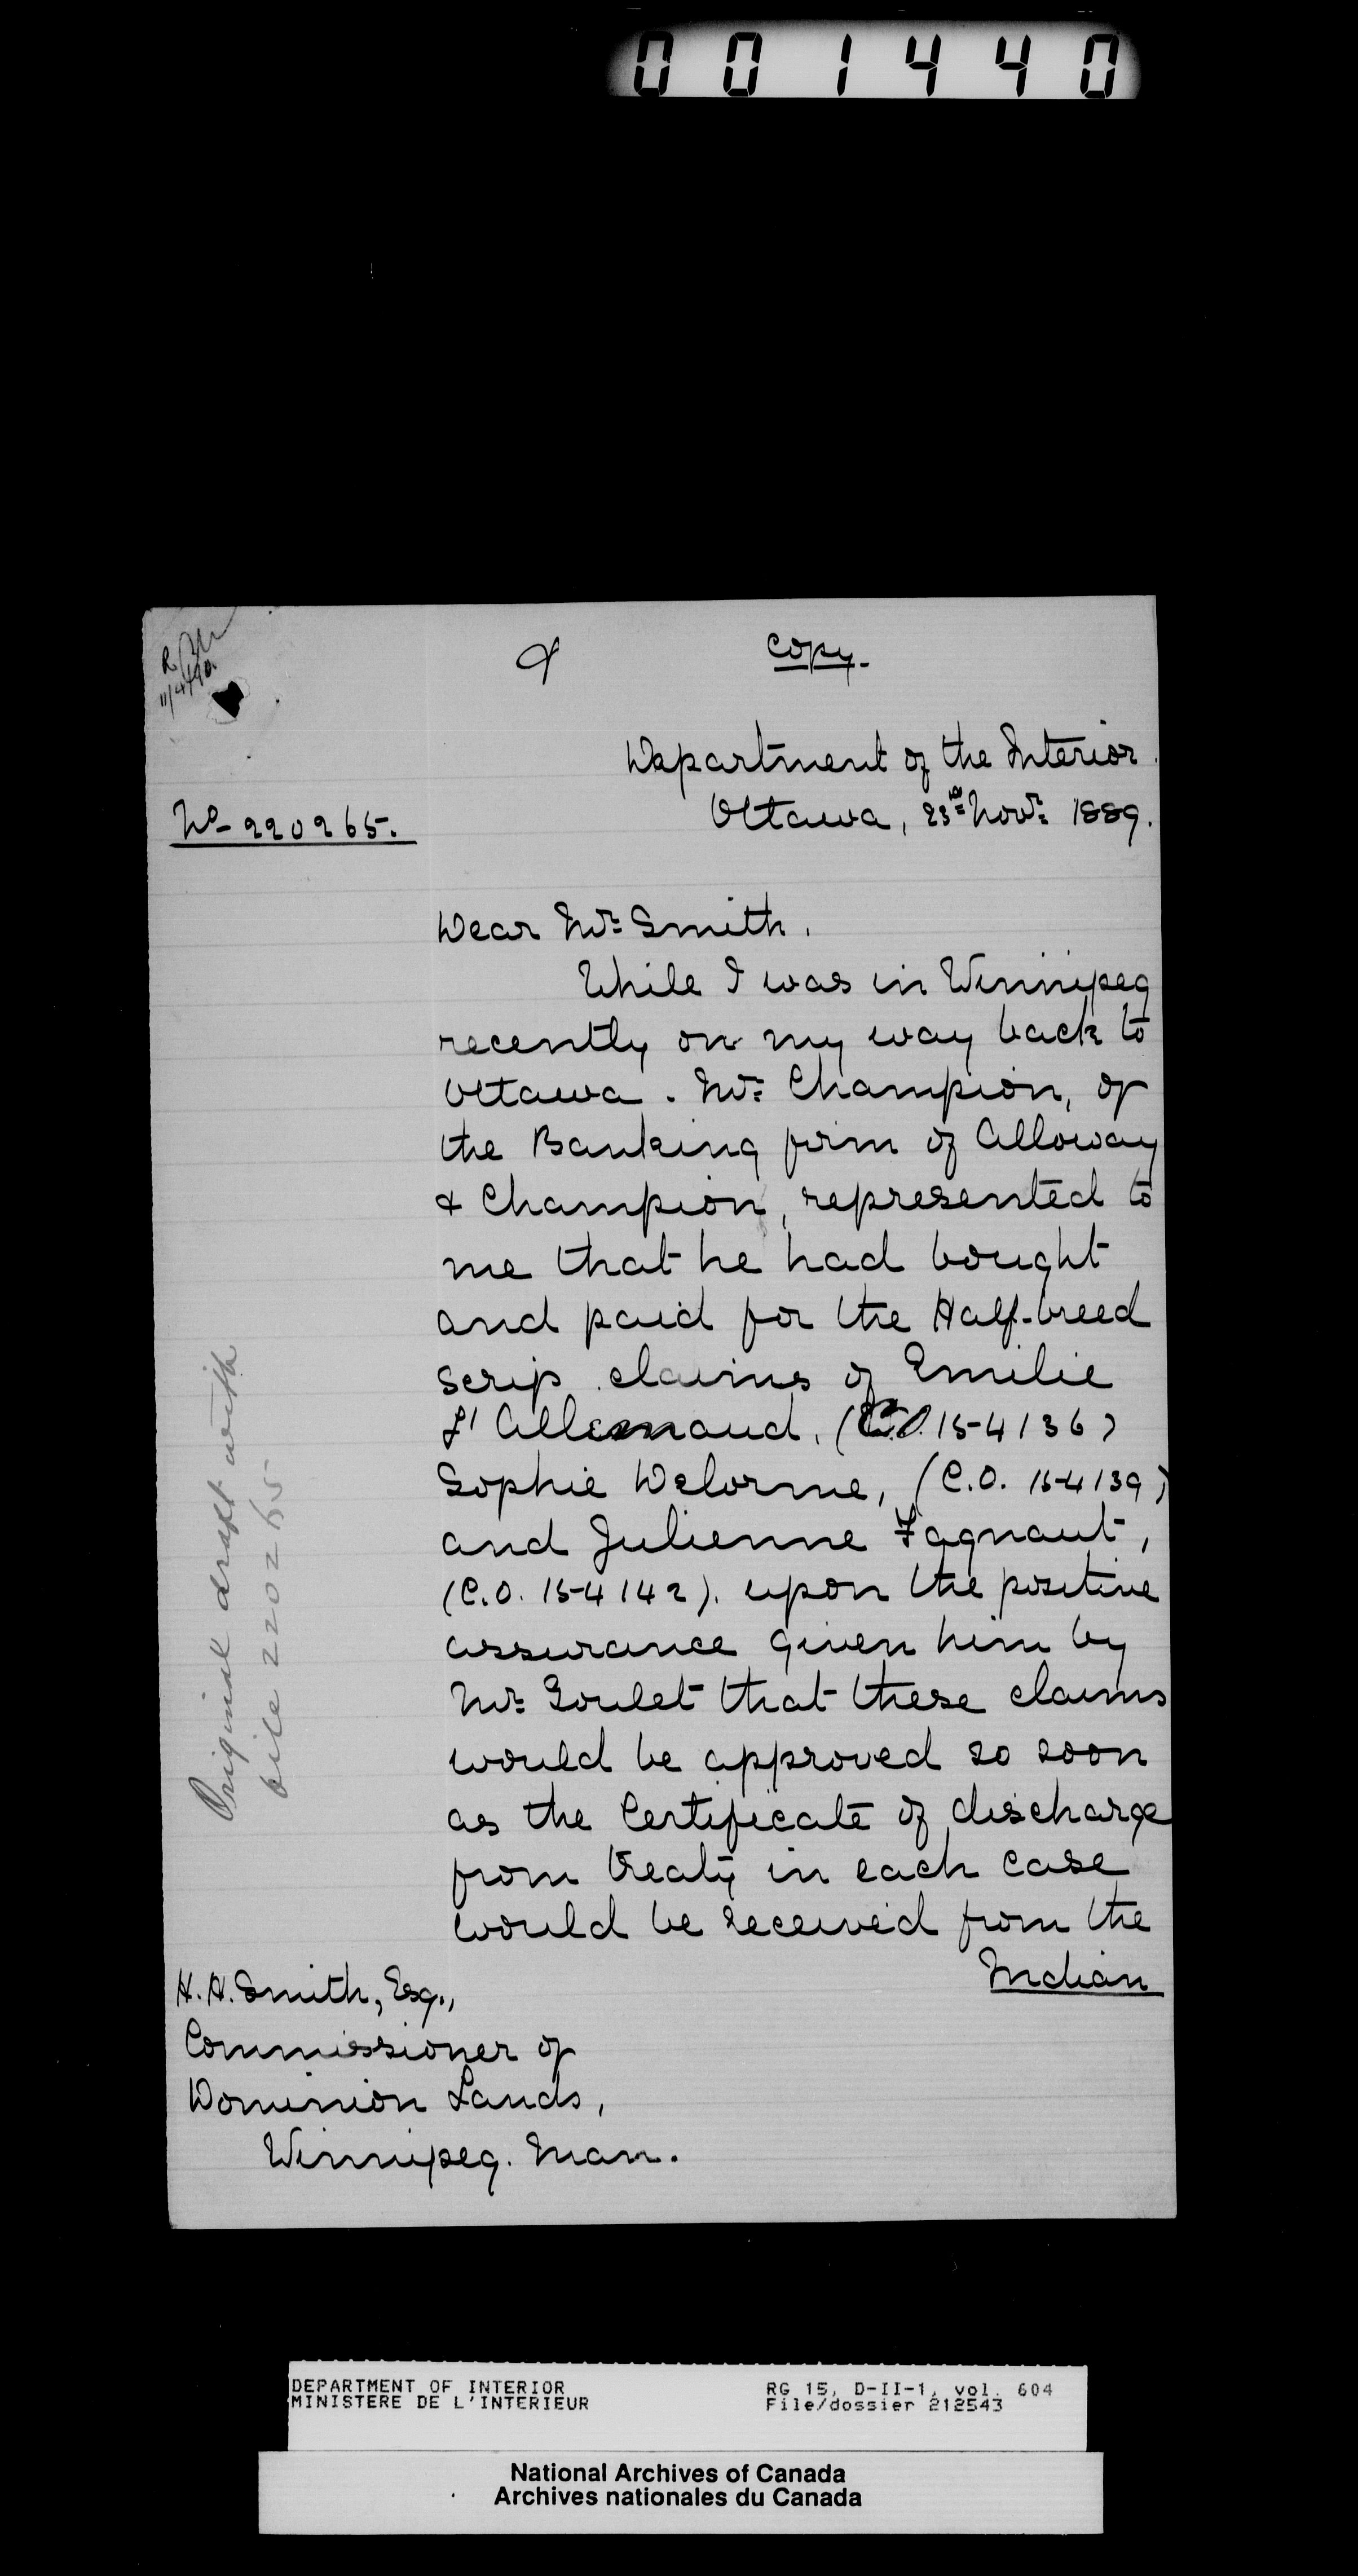 001440
R. M
11/4/90.
Copy.
Department of the Interior.
Ottawa, 23rd Novr. 1889.
No- 220265.
Dear Mr. Smith,
While I was in Winnipeg
recently on my way back to
Ottawa. Mr. Champion, of
the Banking firm of Alloway
& Champion, represented to
me that he had bought
and paid for the Half-breed
scrip claims of Emilie
L'Allemand, (C.O. 154136)
Sophie Delorme, (C.O. 154139)
and Julienne Fagnaut,
(C.O. 154142). upon the positive
assurance given him by
Mr. Goulet that these claims
would be approved so soon
as the Certificate of discharge
from treaty in each case
would be received from the
Indian
H. H. Smith, Esq.,
Commissioner of
Dominion Lands,
Winnipeg. Man.
Original draft with
file 220265
DEPARTMENT OF INTERIOR
MINISTERE DE L'INTERIEUR
RG 15, D-II-1, vol. 604
File/dossier 212543
National Archives of Canada
Archives nationales du Canada